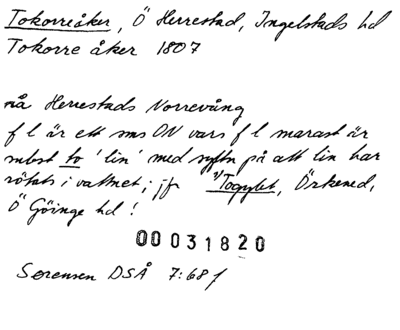 Tokorreåker, Ö Herrestad, Ingelstads hd
Tokorre åker 1807
på Herrestads Norrevång
f l är ett sms ON vars f l närmast är
subst to 'lin' med syftn på att lin har
rötats i vattnet; jfr Togylet, Örkened,
Ö Göinge hd!
00031820
Sørensen DSÅ 7:68 f